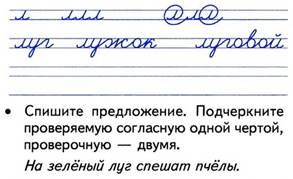 л ллл алл
луг лужок луговой
• Спишите предложение. Подчеркните
проверяемую согласную одной чертой,
проверочную — двумя.
На зелёный луг спешат пчёлы.